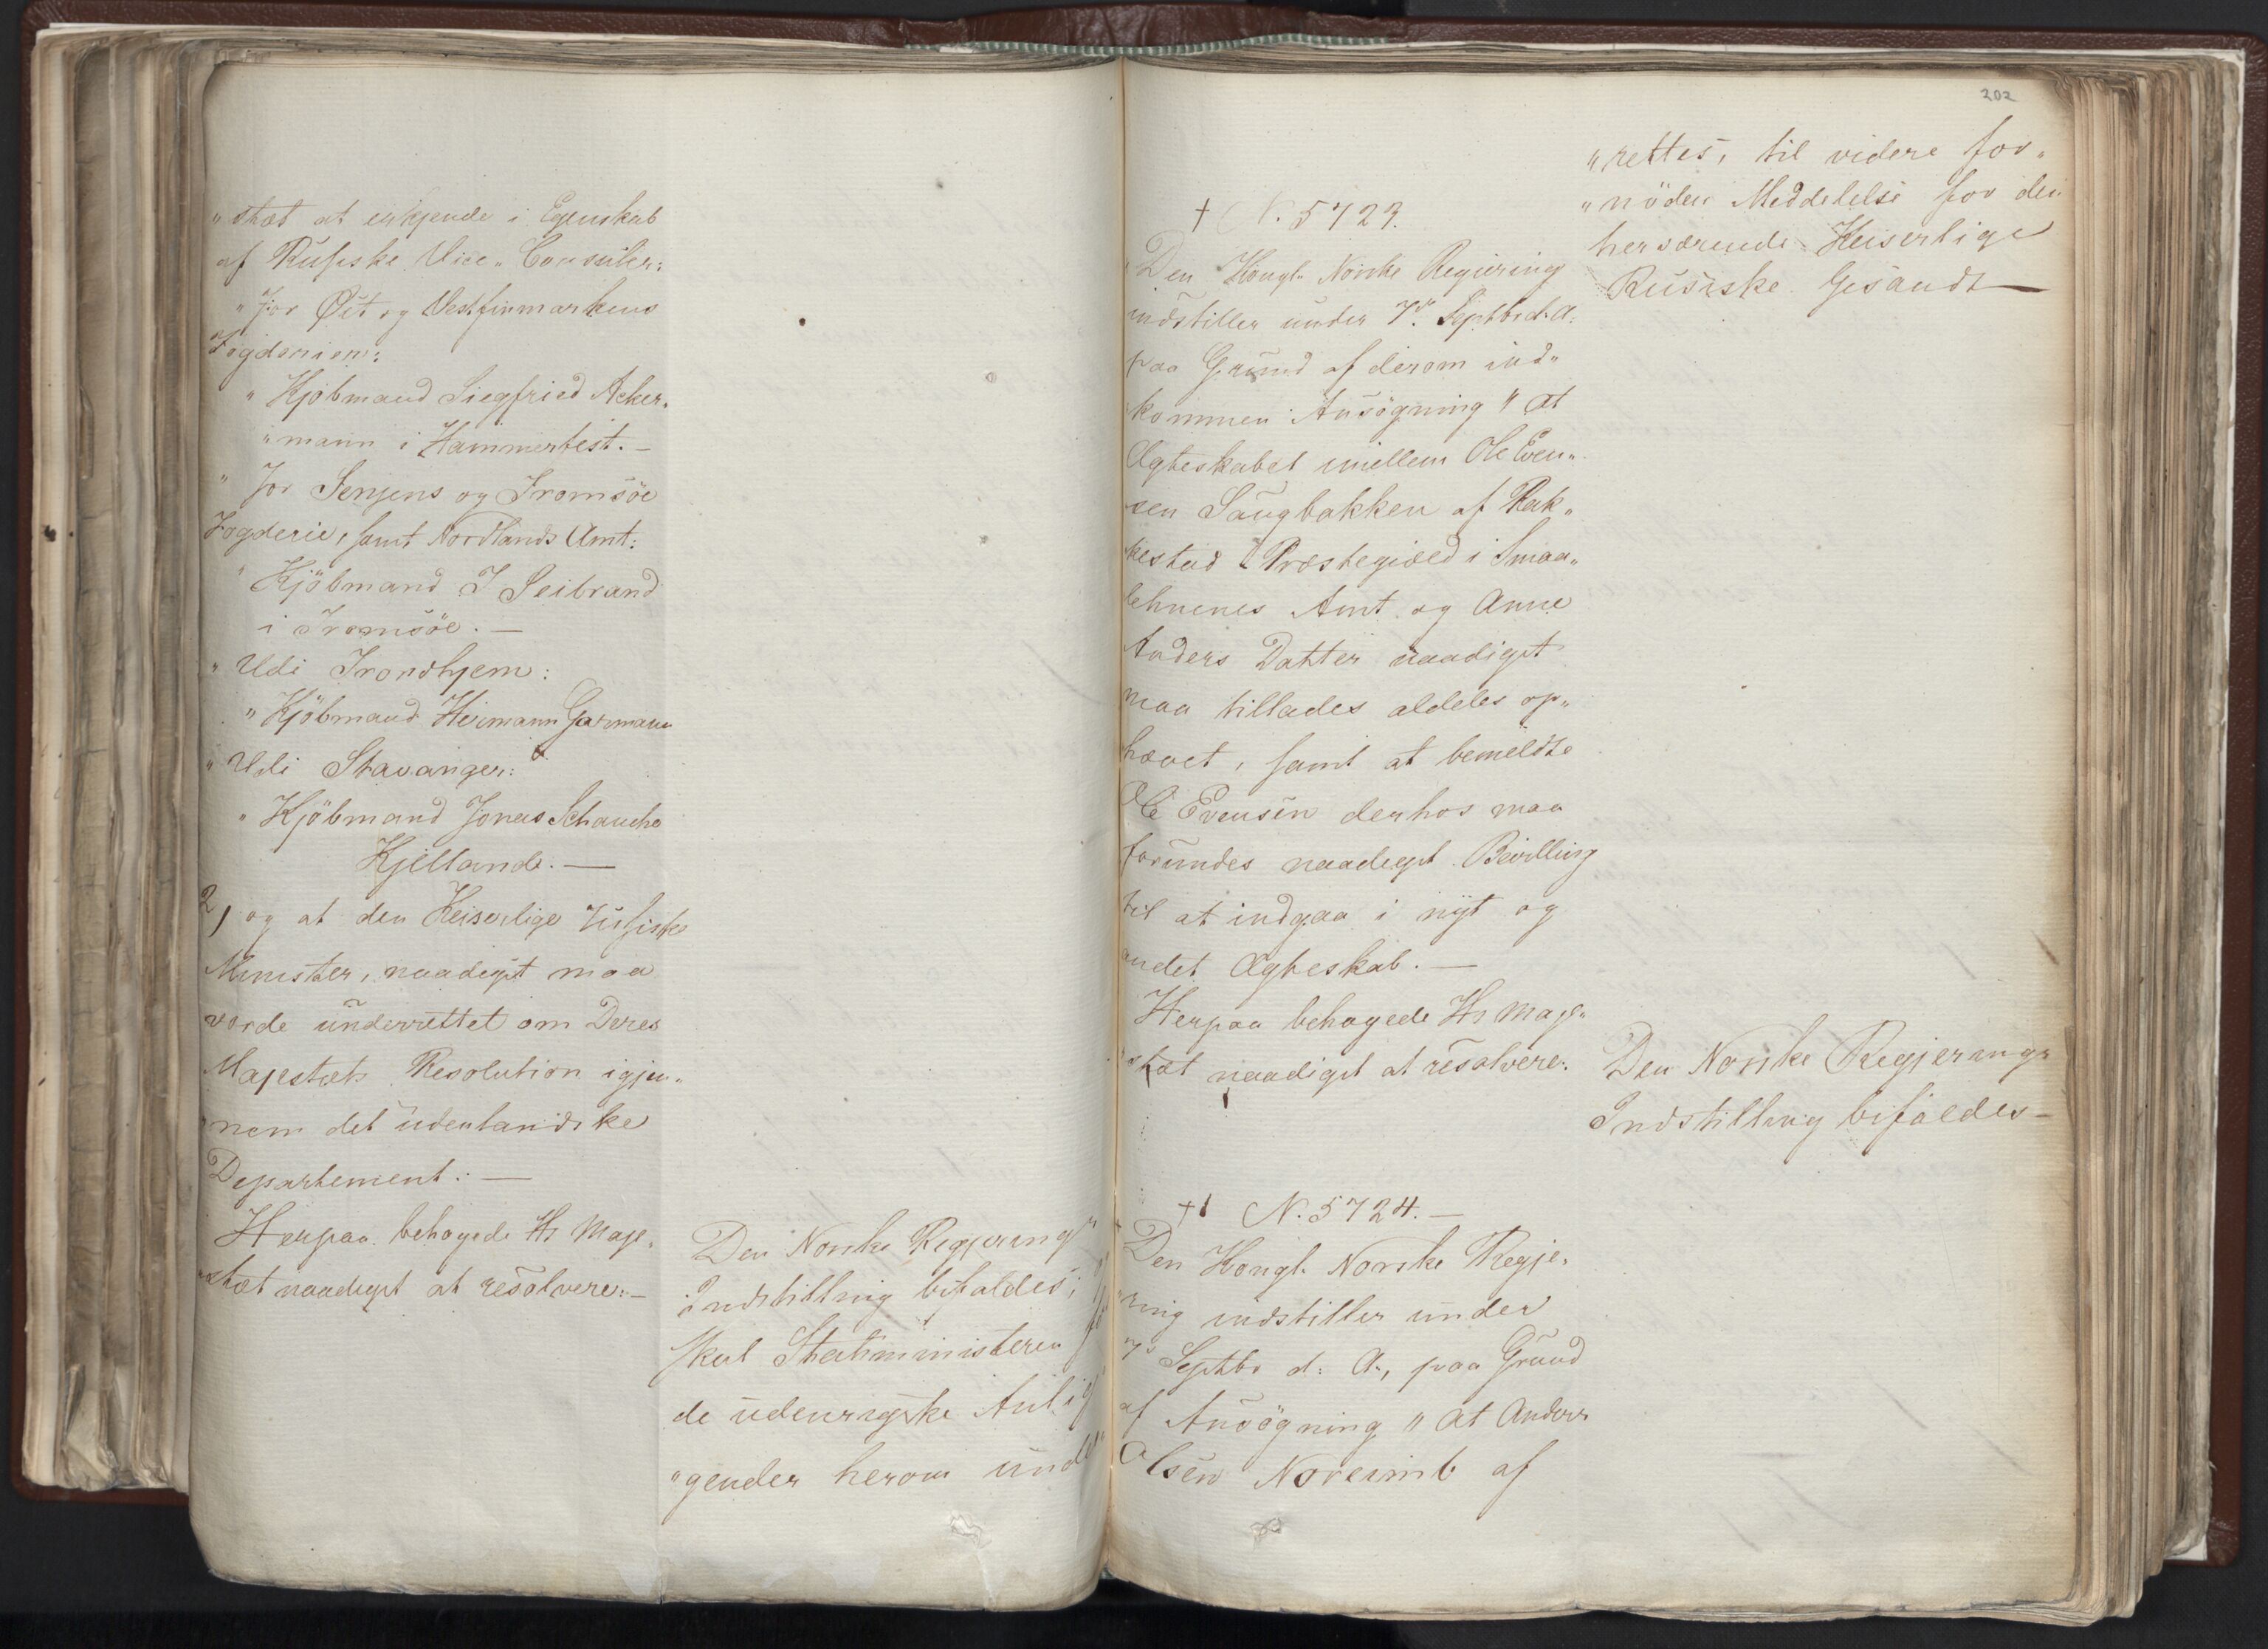 „stæt at erkjende i Egenskab
af Russiske Vice„Consuler:
„For Øst og Vestfinmarkens
Fogderier:
„Kjöbmand Siegfried Acker„
„mann i Hammerfest. —
„For Senjens og Tromsöe
Fogderie, samt Nordlands Amt:
„Kjöbmand J Seibrand
i Tromsöe. —
„Udi Trondhjem:
„Kjöbmand Hermann Garmann
„Udi Stavanger:
„Kjöbmand Jonas Schanche
Kjelland. —
2, og at den Keiserlige russiske
Minister, naadigst maa
vorde underrettet om Deres
Majestæts Resolution igjen„
nem det udenlandske
Departement: —
Herpaa behagede Hs Maje„
„stæt naadigst at resolvere: —
Den Norske Regjerings
Indstilling bifaldes;
skal Statsministeren
de udenrigske Anlig
„gender herom under
202
† N. 5723.
Den Kongl. Norske Regiering
indstiller under 7de Septbr d. A.
paa Grund af derom ind„
kommen Ansögning „at
Ægteskabet imellem Ole Even„
sen Saugbakken af Rak„
kestad Præstegiæld i Smaa„
lehnenes Amt og Anne
Anders Datter naadigst
maa tillades aldeles op„
hævet, samt at bemeldte
Ole Evensen derhos maa
forundes naadigst Bevilling
til at indgaa i nyt og
andet Ægteskab. —
Herpaa behagede Hs Maje„
„stæt naadigst at resolvere:
† N. 5724. —
Den Kongl. Norske Regje„
ring indstiller under
7de Septbr d: A., paa Grund
af Ansögning „at Anders
Olsen af
„rettes, til videre for„
„nöden Meddelelse for den
herværende Keiserlige
Russiske Gesandt —
Den Norske Regjerings
Indstilling bifaldes —